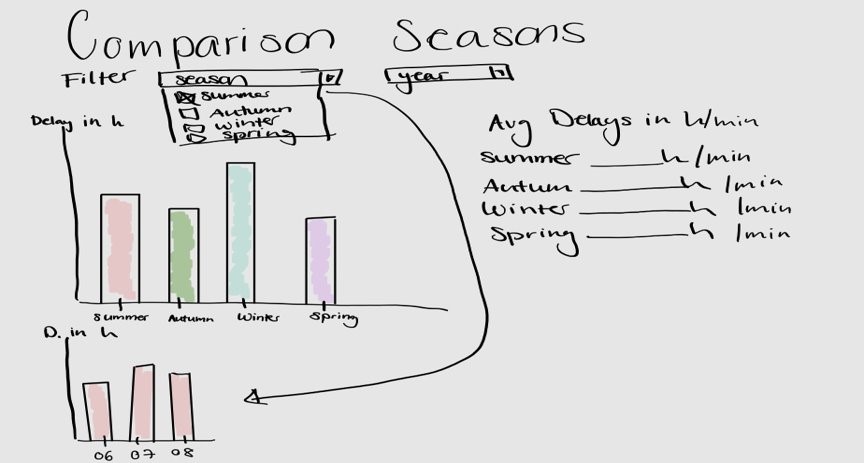 Comparison Seasons
Filter season year
summer
Autumn
winter
spring
Delay in h
Summer Autumn Winter Spring
Avg Delays in h/min
summer h/min
Autum h/min
Winter h/min
Spring h/min
D. in h
06 07 08